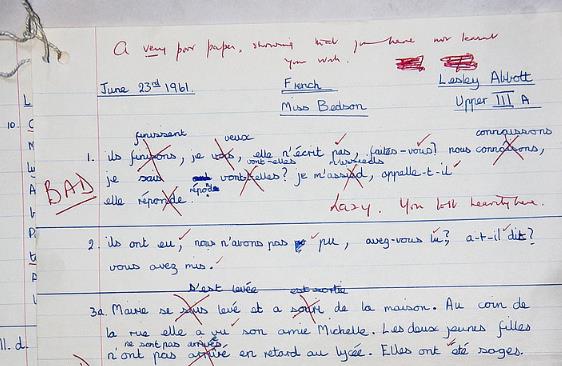 A very poor paper, showing that you have not learnt
your work.
June 23rd 1961.
French
Lesley Abbott
Miss Bedson
Upper III A
10.
finissent
veux
connaissons
1. ils funisons, je vois, elle n'écrit pas, faites-vous? nous connaisons,
vont-elles
m'assieds
je sais vont-elles? je m'assied, appelle-t-il
BAD
répond
elle réponde.
Lazy. You lost heavily here.
2. ils ont eu, nous n'avons pas pu, avez-vous lu? a-t-il dit?
vous avez mis.
s'est levée
est sortie
3a. Marie se sous levé et a sortie de la maison. Au coin de
la rue elle a vu son amie Michelle. Les deux jeunes filles
ne sont pas arrivés
11. d.
n'ont pas arrivé en retard au lycée. Elles ont été sages.